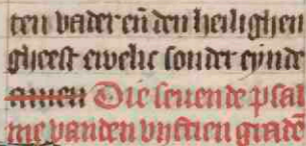 ten vader eñ den heilighen
gheest ewelic sonder eynde
amen Die seuende psal
me vanden vijftien gradē